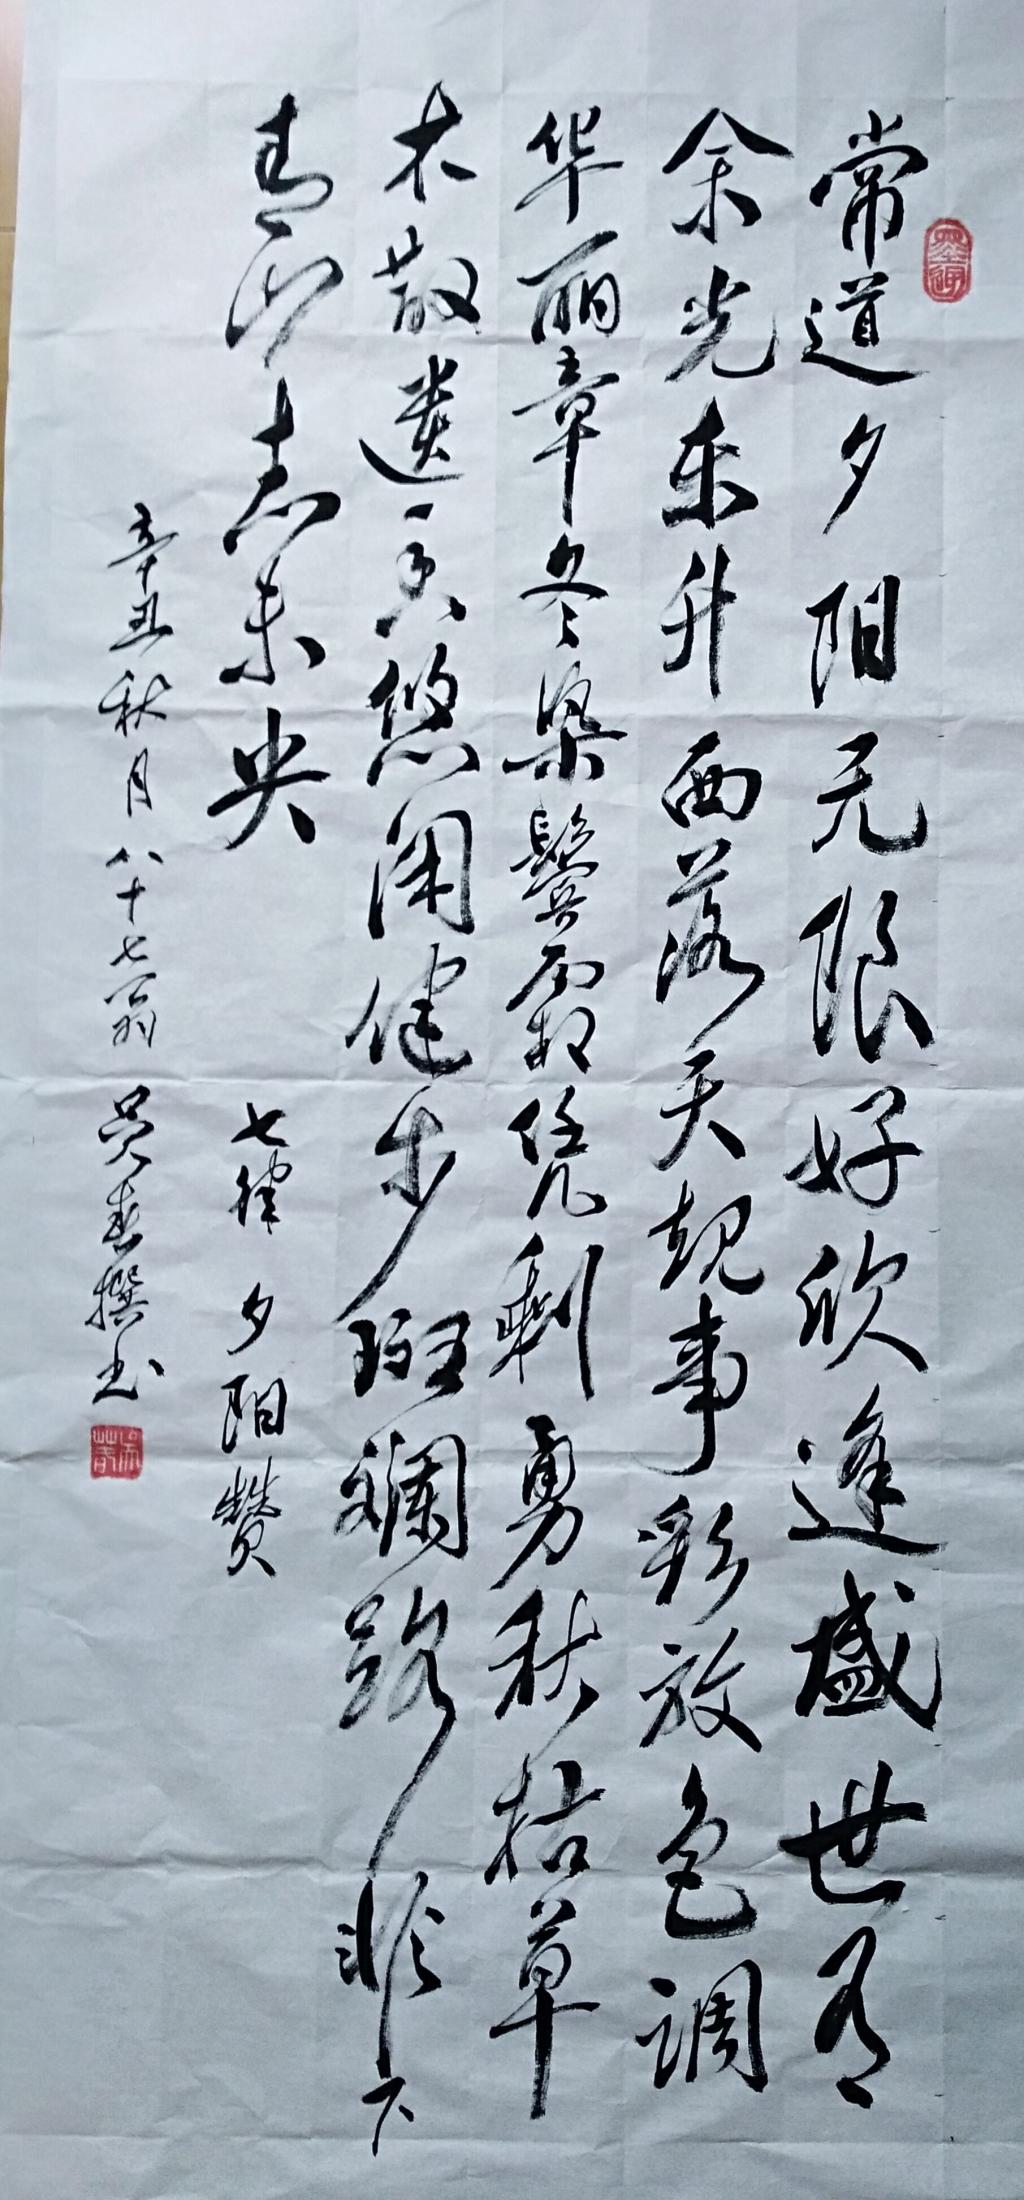 常道夕阳无限好欣逢盛世有
余光东升西落天规事彩放色调
华丽章冬染鬓霜任凭剩勇秋枯草
木散遗香悠闲健步斑斓路脚下
青山志未央
七律 夕阳赞
辛丑秋月八十七翁 吴春撰书